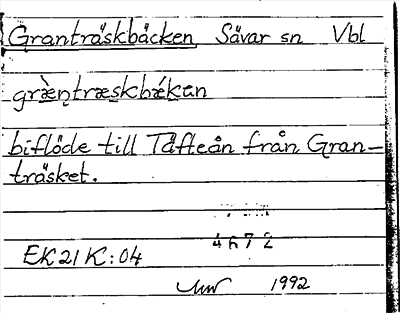 Granträskbäcken Sävar sn Vbl
græ̀ntræskbǽkan
biflöde till Täfteån från Gran-
träsket.
4672
EK21K:04
1992